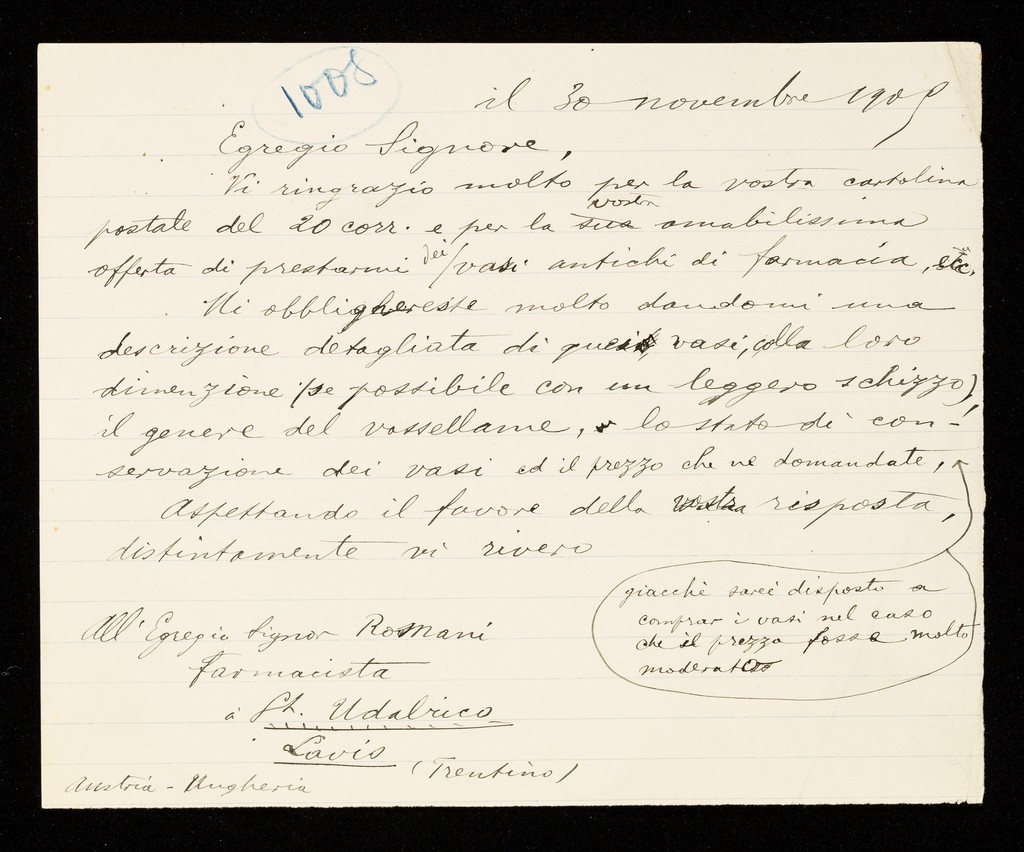 1008
il 30 novembre 1905
Egregio Signore,
Vi ringrazio molto per la vostra cartolina
postale del 20 corr. e per la sua vostra amabilissima
offerta di prestarmi dei vasi antichi di farmacía, etc.
Mi obblighereste molto dandomi una
descrizione detagliata di questi vasi, colla loro
dimenzione (se possibile con un leggero schizzo),
il genere del vassellame, lo stato di con-
servazione dei vasi ed il prezzo che ne domandate,
Aspettando il favore della vostra risposta,
distintamente vi rivero
giacchè sarei disposto a
comprar i vasi nel caso
che il prezzo fosse molto
moderato
All' Egregio Signor Romani
farmacista
à St. Udalrico
Lavis
(Trentino)
Austria - Ungheria